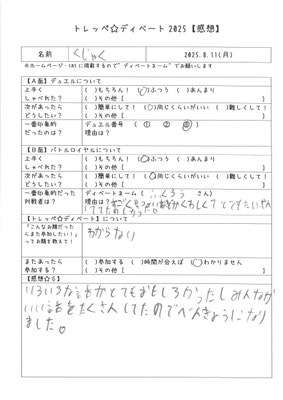 トレッペ☆ディベート2025【感想】
名前 くじゃく 2025.8.11(月)
※ホームページ・SNSに掲載するので"ディベートネーム"でお願いします
【A面】デュエルについて
上手く しゃべれた? ( )もちろん! (○)ふつう ( )あんまり ( )その他【 】
次があったら どうしたい? ( )簡単にして! (○)同じくらいがいい ( )難しくして! ( )その他【 】
一番印象的 だったのは? デュエル番号 ( ① ② ③ ) 理由は?
【B面】バトルロイヤルについて
上手く しゃべれた? ( )もちろん! (○)ふつう ( )あんまり ( )その他【 】
次があったら どうしたい? ( )簡単にして! (○)同じくらいがいい ( )難しくして! ( )その他【 】
一番印象的だった 対戦者は? ディベートネーム ( ふくろう さん)
理由は?
【トレッペ☆ディベート】について
「こんなお題だったら また参加したい!」 ってお題を教えて! わからない
またあったら 参加する? ( )参加する ( )時間が合えば (○)わかりません ( )その他【 】
【感想☆彡】
いろいろな話がとてもおもしろかったしみんなが
いい話をたくさんしてたのでべんきょうになり
ました。